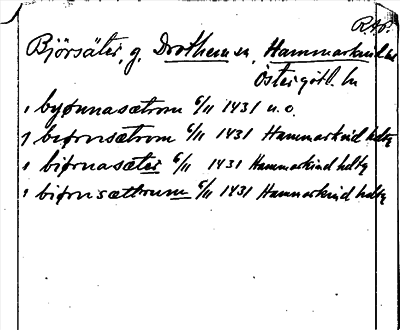 R.A.P.
Björsäter, g. Drothem sn, Hammarkind hd
Östergötl. ln
, byønnasætrom 6/11 1431 u.o.
, biørnsætrom 6/11 1431 Hammarkind hdtg
, biørnasæter 6/11 1431 Hammarkind hdtg
, biørnsættrum 6/11 1431 Hammarkind hdtg